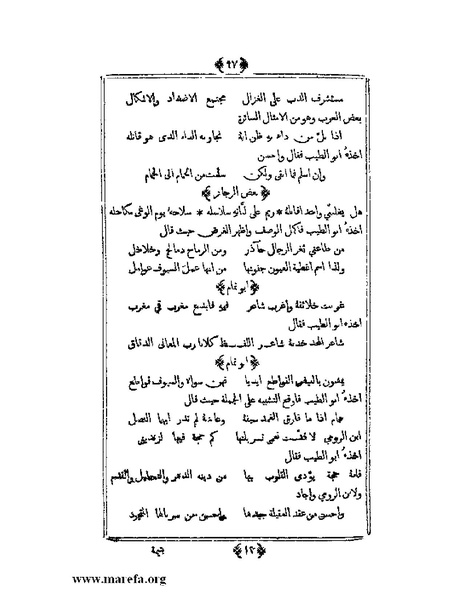 ﴿ ٩٧ ﴾
مستشرف الدب على الغزال مجتمع الاضداد والاشكال
بعض العرب وهو من الامثال السائرة
اذا بلّ من داء به ظن انه نجا وبه الداء الذي هو قاتله
اخذهُ ابو الطيب فقال واحسن
وإن اسلم فما ابقى ولكن سلمت من الحمام الى الحمام
﴿ بعض الرجاز ﴾
هل يغلبنّي واحد اقاتله * ريم على لبّاته سلاسله * سلاحه يوم الوغى مكاحله
اخذهُ ابو الطيب فاكمل الوصف واظهر الغرض حيث قال
من طاعني ثغر الرجال جآذر ومن الرماح دمالج وخلاخل
ولذا اسم اغطية العيون جفونها من انها عمل السيوف عوامل
﴿ ابو تمام ﴾
غربت خلائقهُ واغرب شاعر فيهِ فابدع مغرب في مغرب
اخذهُ ابو الطيب فقال
شاعر المجد خدنهُ شاعر اللفظ كلانا رب المعاني الدقاق
﴿ ابو تمام ﴾
يمدون بالبيض القواطع ايديا فهن سواء والسيوف قواطع
اخذهُ ابو الطيب فاوقع التشبيه على الجملة حيث قال
همام اذا ما فارق الغمد سيفهُ وعاينتهُ لم تدر ايهما النصل
ابن الرومي
اخذهُ ابو الطيب فقال
فانهُ حجة يؤذي القلوب بها من دينه الدهر والتعطيل والقدم
ولابن الرومي واجاد
واحسن من عقد العقيلة جيدها واحسن من سربالها المتجرد
﴿ ١٣ ﴾ يتيمة
www.marefa.org